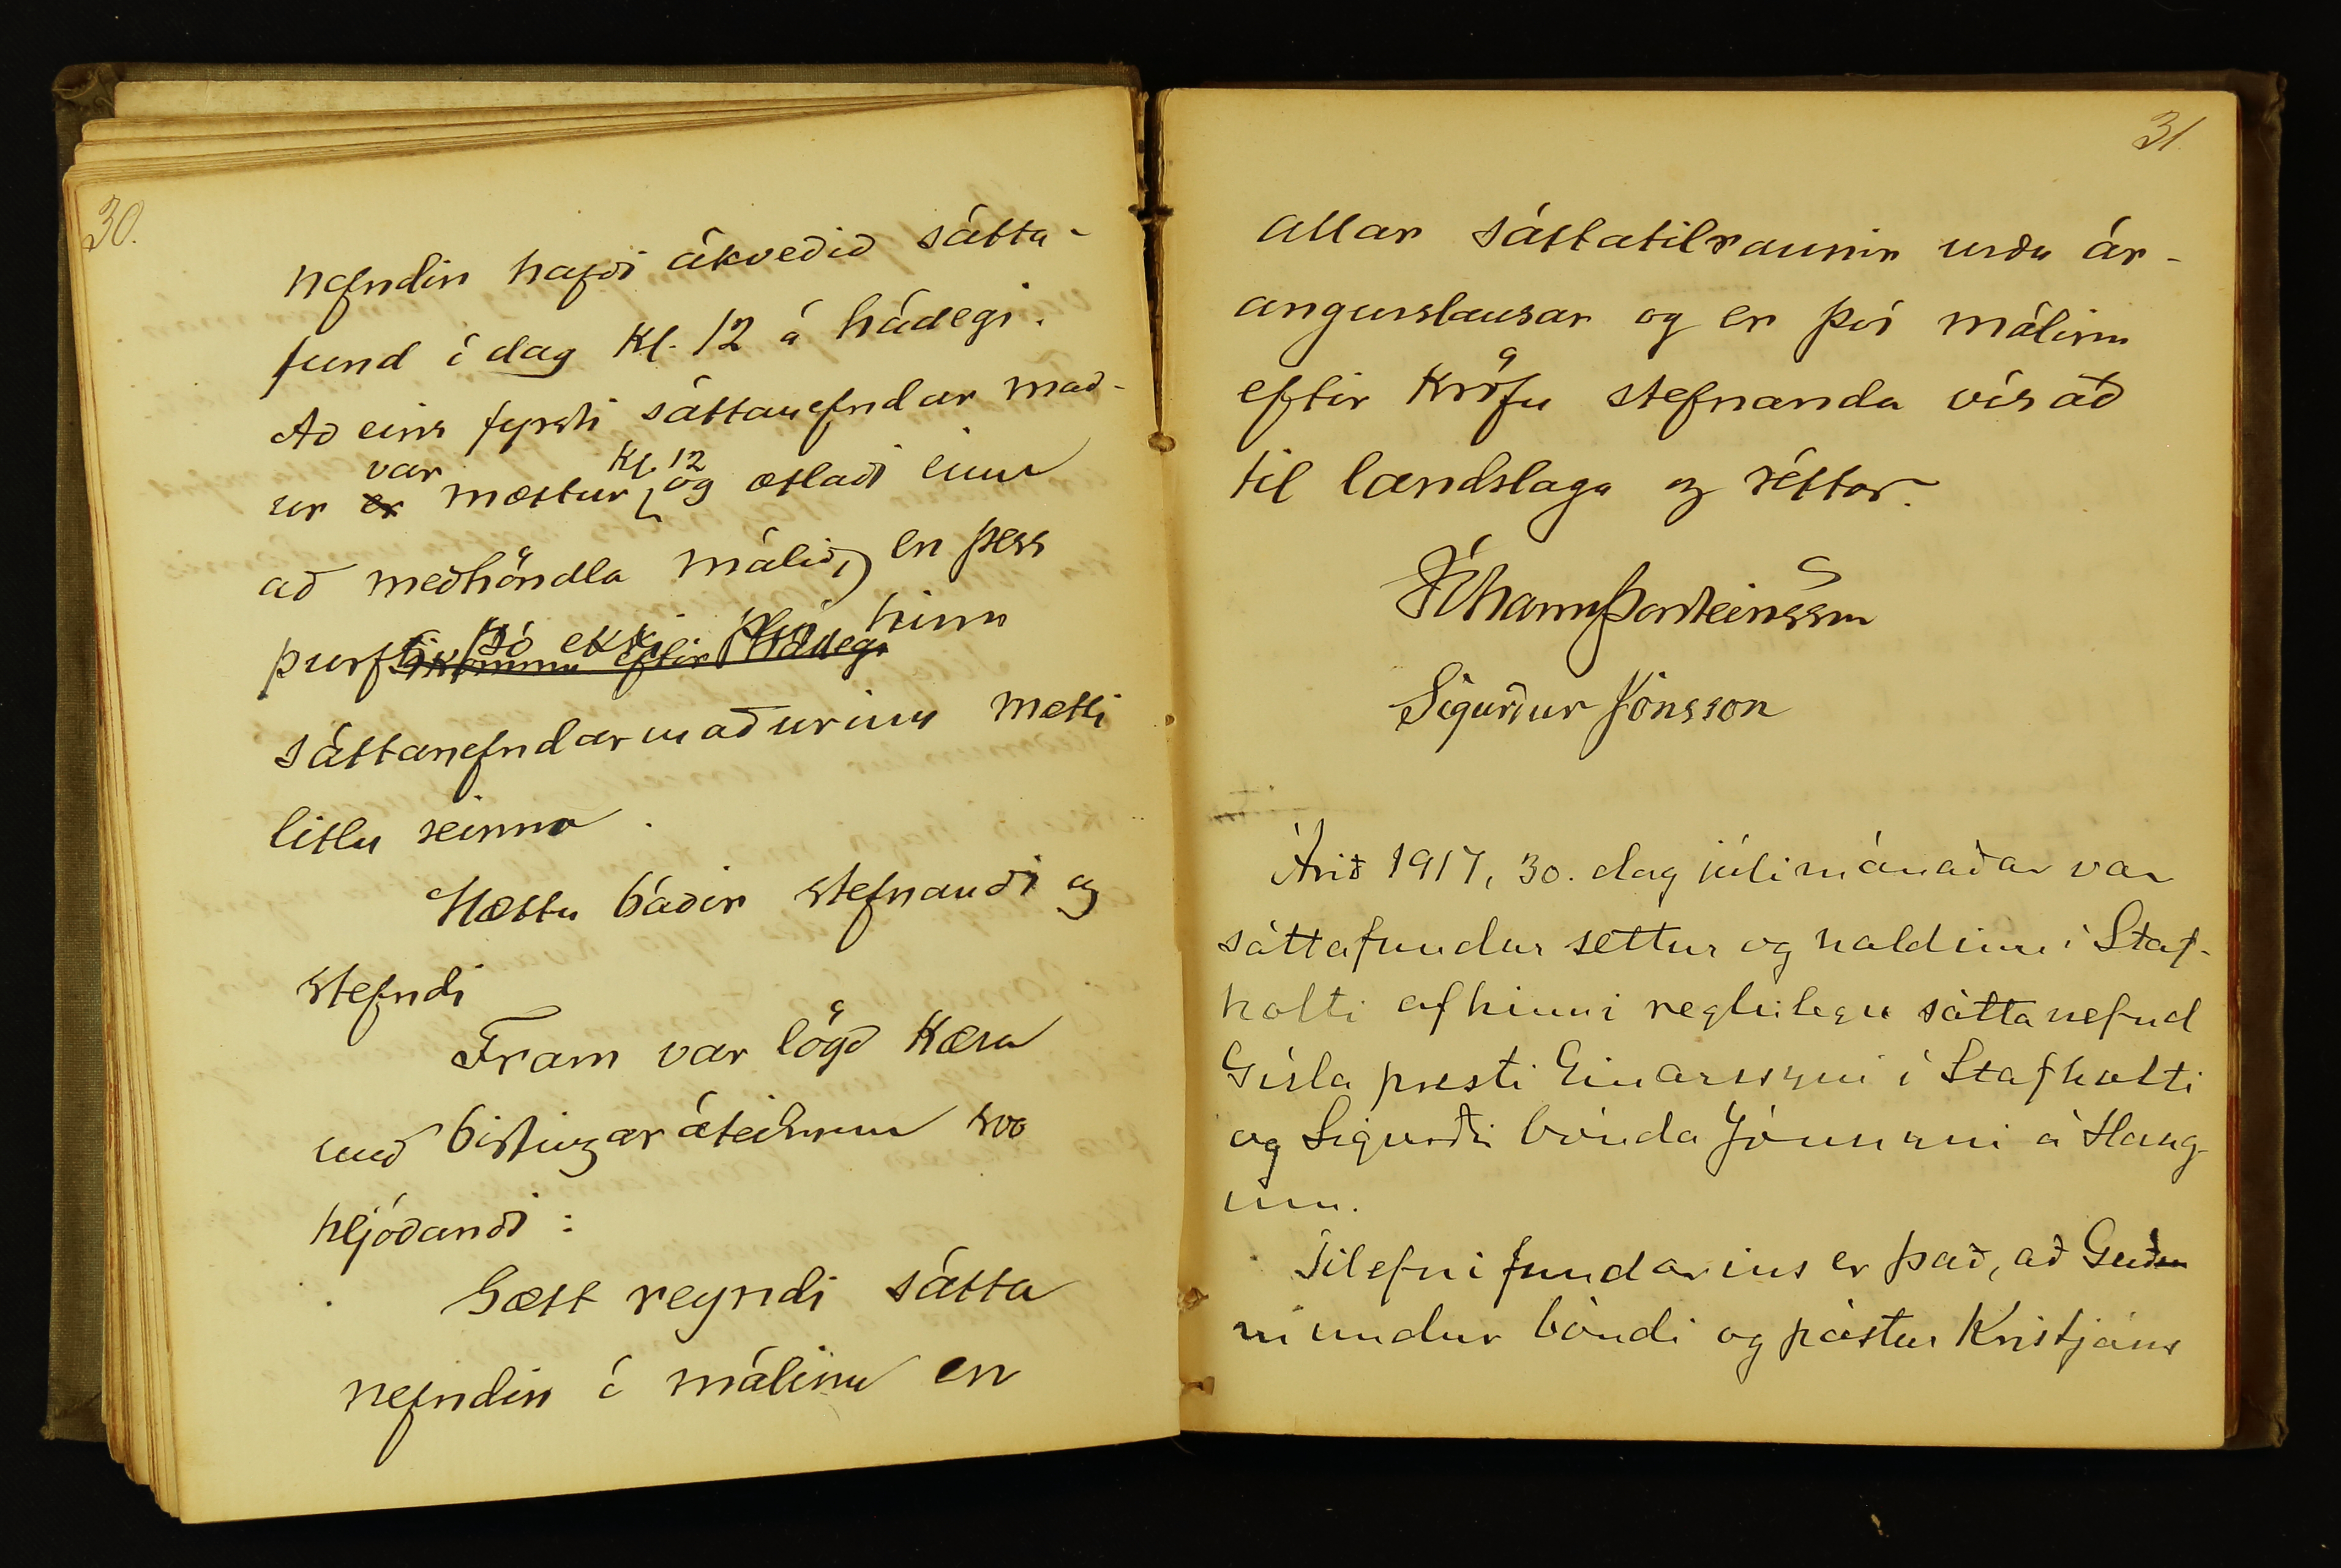 30.
nefndin hafði ákveðið sátta-
fund í dag kl. 12 á hádegi.
Að eins fyrsti sáttanefndar mað-
ur var mættur kl. 12 og ætlaði einn
að meðhöndla málið, en þess
þurfti þó ekki því hinn
sáttanefndarmaðurinn mætti
litlu seinna.
Mættu báðir stefnandi og
stefndi
Fram var lögð kæra
með birtingaráteiknun svo
hljóðandi:
Sætt reyndi sátta
nefndin í málinu en
31
allar sáttatilraunir urðu ár-
angurslausar og er því málinu
eftir kröfu stefnanda vísað
til landslaga og réttar.
Jóhann Þorsteinsson
Sigurður Jónsson
Árið 1917, 30. dag júlimánaðar var
sáttafundur settur og haldinn í Staf-
holti af hinni reglulegu sáttanefnd
Gísla presti Einarssyni í Stafholti
og Sigurði bónda Jónssyni á Haug-
um.
Tilefni fundarins er það, að Guðm
mundur bóndi og póstur Kristjáns